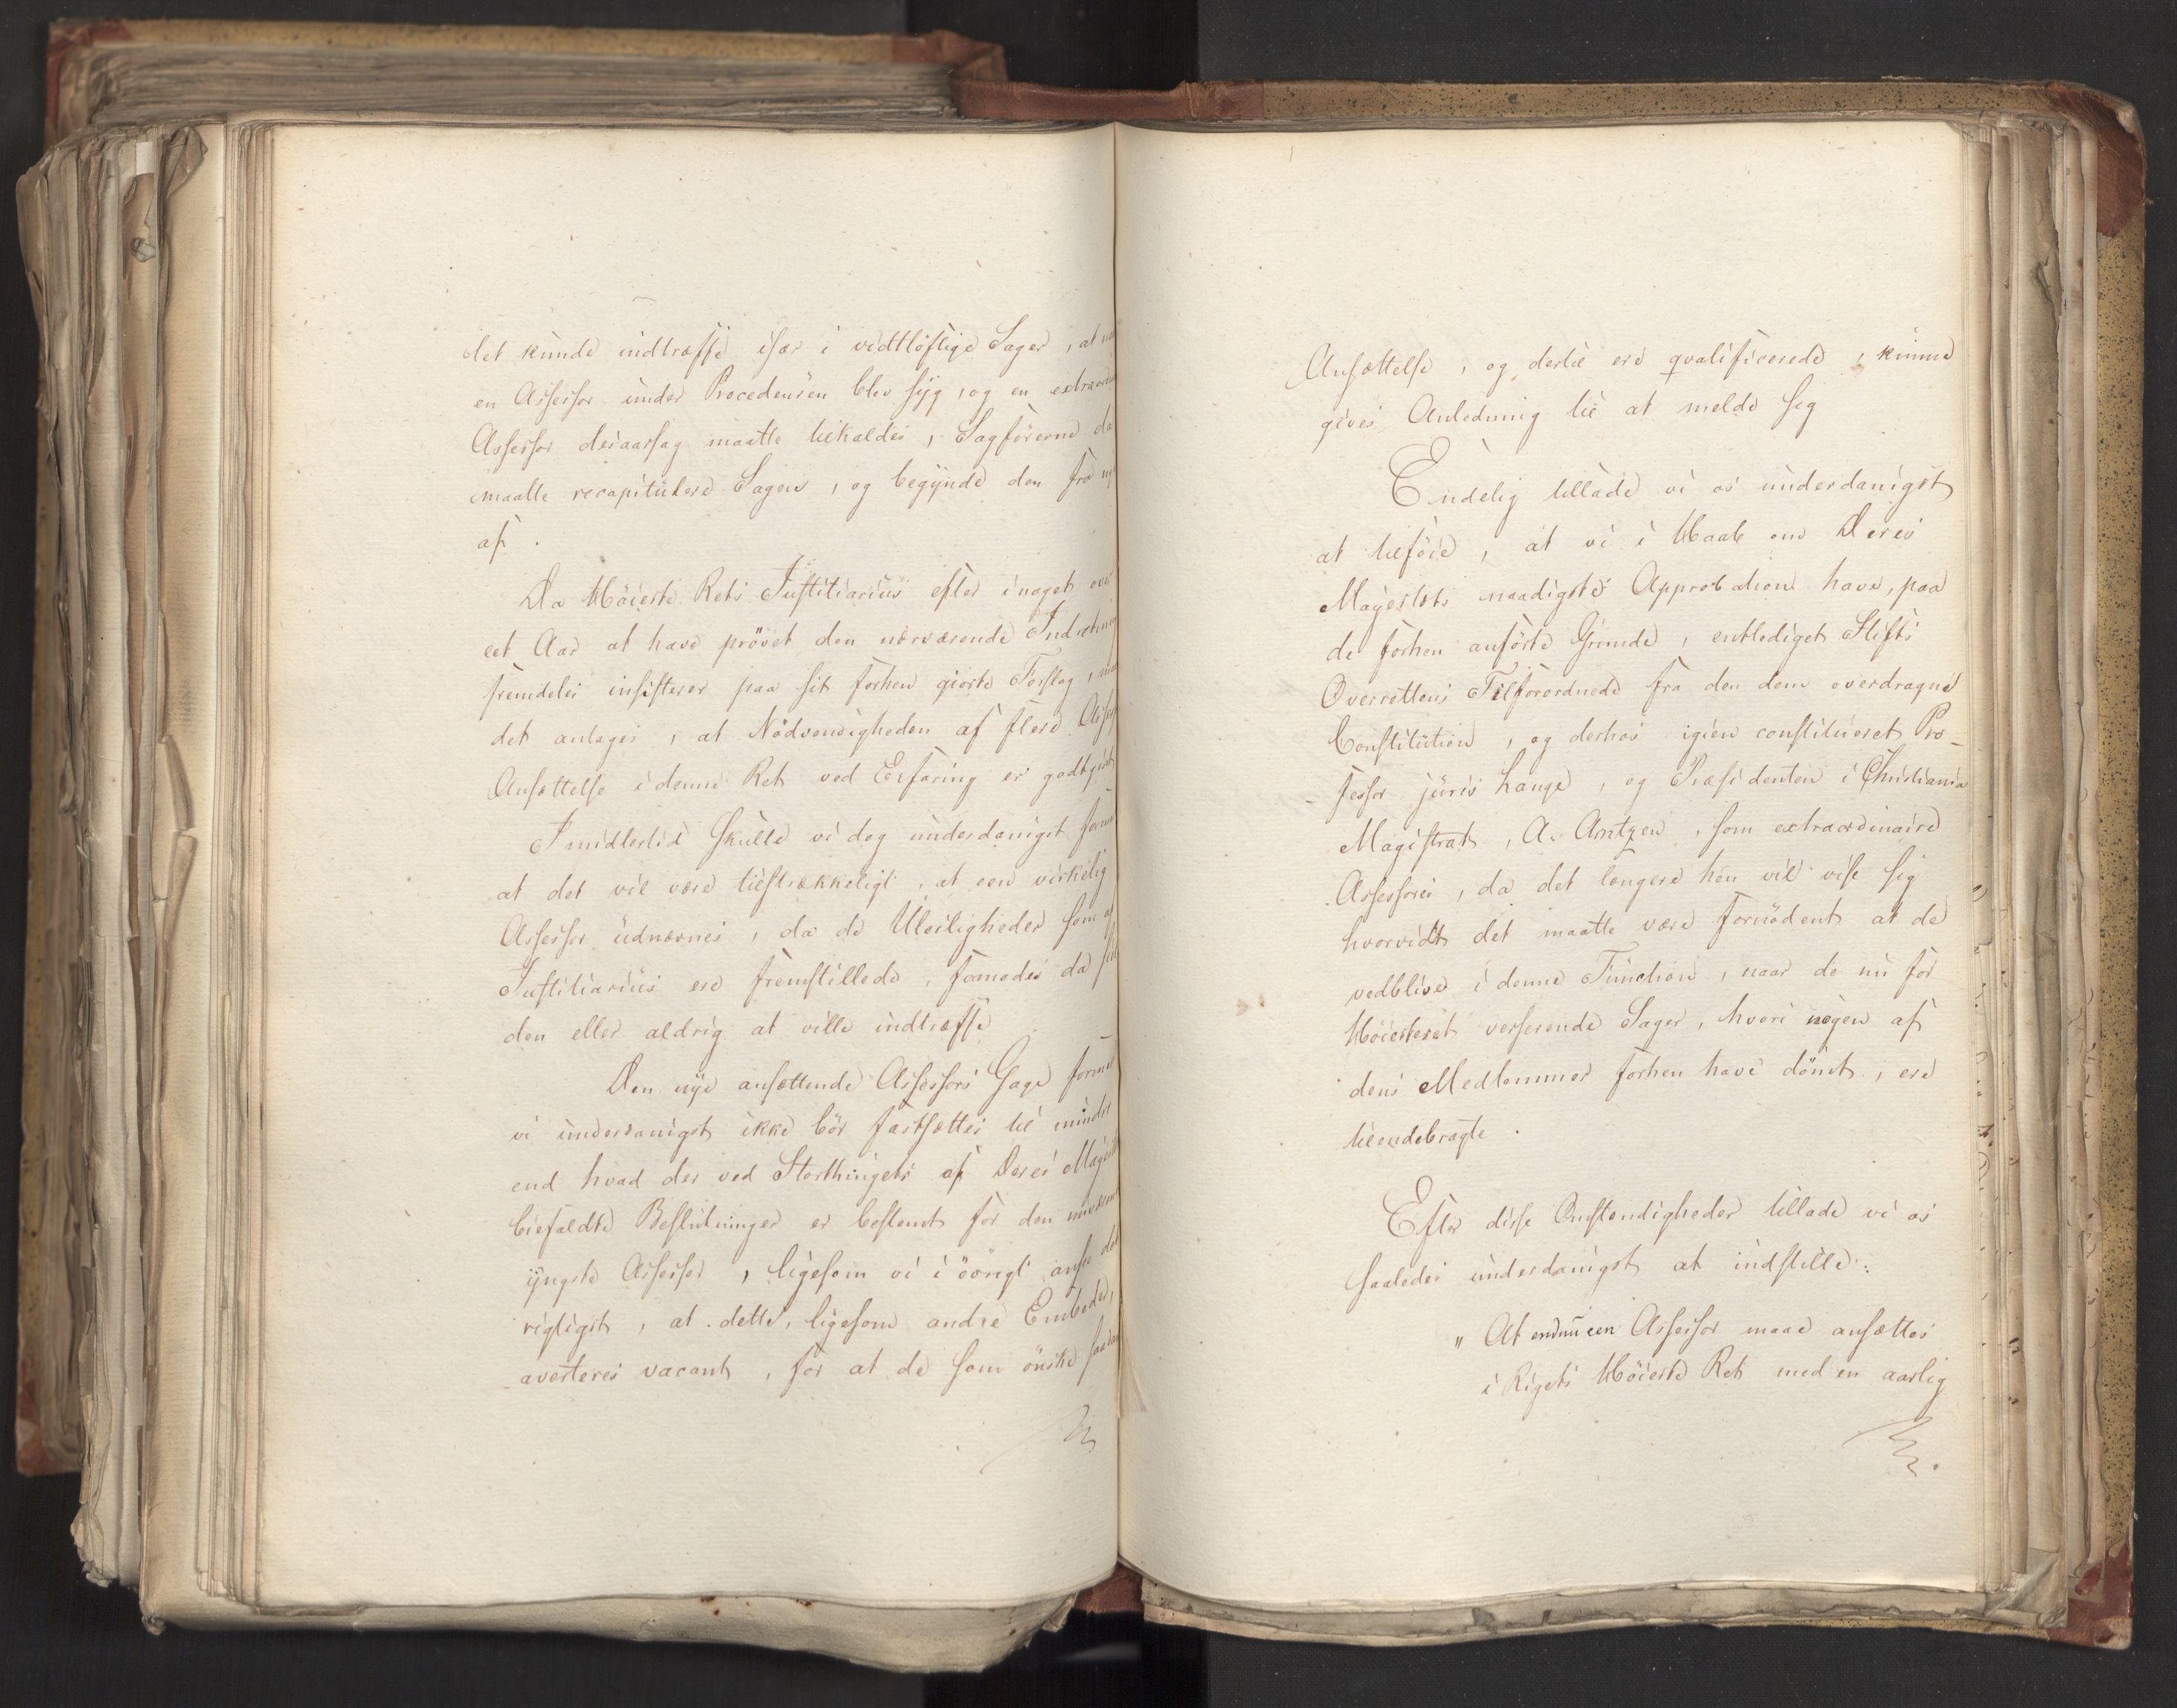 det kunde indtræffe især i vidtløftige Sager, at
en Assessor under Proceduren blev syg, og en
Assessor desaarsag maatte tilkaldes, Sagførerne da
maatte recapitulere Sagen, og begynde den fra
af.
Da Høieste Rets Justitiarius efter i noget
eet Aar at have prøvet den nærværende
fremdeles insisterer paa sit forhen giorte Forslag,
det antages, at Nødvendigheden af flere
Ansættelse i denne Ret ved Erfaring er
Imidlertid skulle vi dog underdanigst
at det vil være tilstrækkeligt, at een virkelig
Assessor udnævnes, da de Uleiligheder som af
Justitiarius ere fremstillede, formodes da
den eller aldrig at ville indtræffe
Den nye ansættende Assessors Gage
vi underdanigst ikke bør fastsættes til mindre
end hvad der ved Storthingets af Deres
biefaldte Beslutninger er bestemt for den
yngste Assessor, ligesom vi i øvrigt ansee det
rigtigst, at dette, ligesom andre Embeder,
averteres vacant, for at de som ønske
Ansættelse, og dertil ere qvalificerede, kunne
gives Anledning til at melde sig
Endelig tillade vi os underdanigst
at tilføie, at vi i Haab om Deres
Majestets naadigste Approbation have, paa
de forhen anførte Grunde, entlediget Stifts
Overrettens Tilforordnede fra den dem overdragne
Constitution, og derhos igien constitueret Pro-
fessor juris Lange, og Præsidenten i Christiania
Magistrat, A. Arntzen, som extraordinaire
Assessorer, da det længere hen vil vise sig
hvorvidt det maatte være fornødent at de
vedblive i denne Function, naar de nu for
Høiesteret verserende Sager, hvori nogen af
dens Medlemmer forhen have dømt, ere
tilendebragte.
Efter disse Omstendigheder tillade vi os
saaledes underdanigst at indstille:
"At endnu een Assessor maae ansættes
i Rigets Høieste Ret med en aarlig